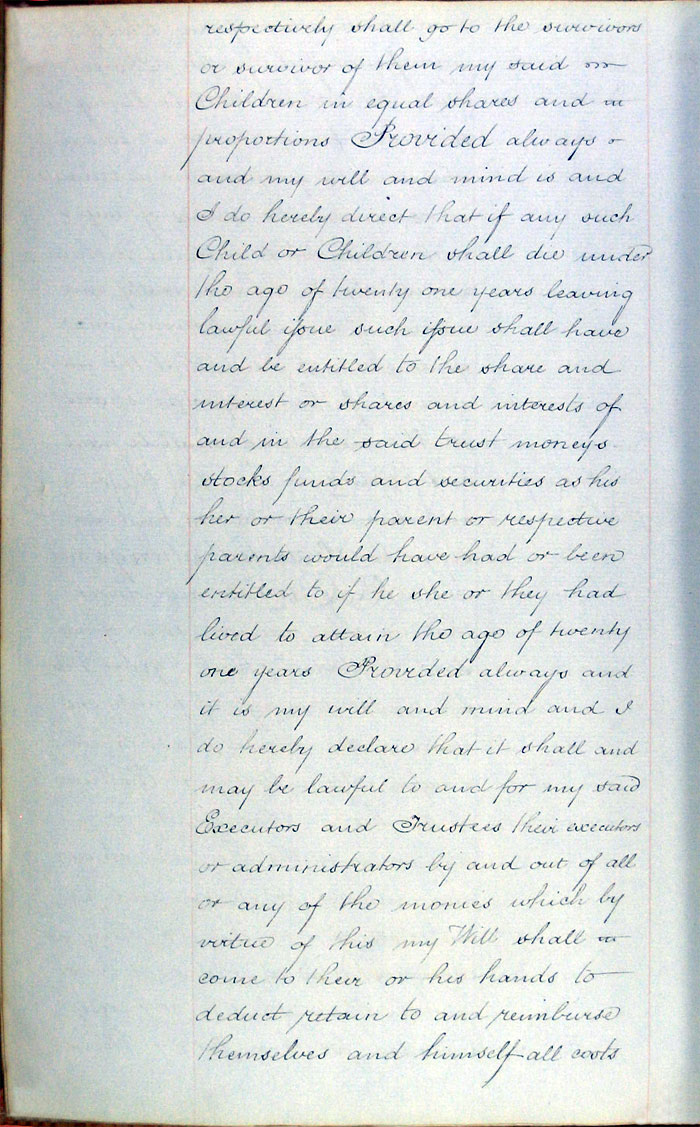 respectively shall go to the survivors
or survivor of them my said
Children in equal shares and
proportions Provided always
and my will and mind is and
I do hereby direct that if any such
Child or Children shall die under
the age of twenty one years leaving
lawful issue such issue shall have
and be entitled to the share and
interest or shares and interests of
and in the said trust moneys
stocks funds and securities as his
her or their parent or respective
parents would have had or been
entitled to if he she or they had
lived to attain the age of twenty
one years Provided always and
it is my will and mind and I
do hereby declare that it shall and
may be lawful to and for my said
Executors and Trustees their executors
or administrators by and out of all
or any of the monies which by
virtue of this my Will shall
come to their or his hands to
deduct retain to and reimburse
themselves and himself all costs